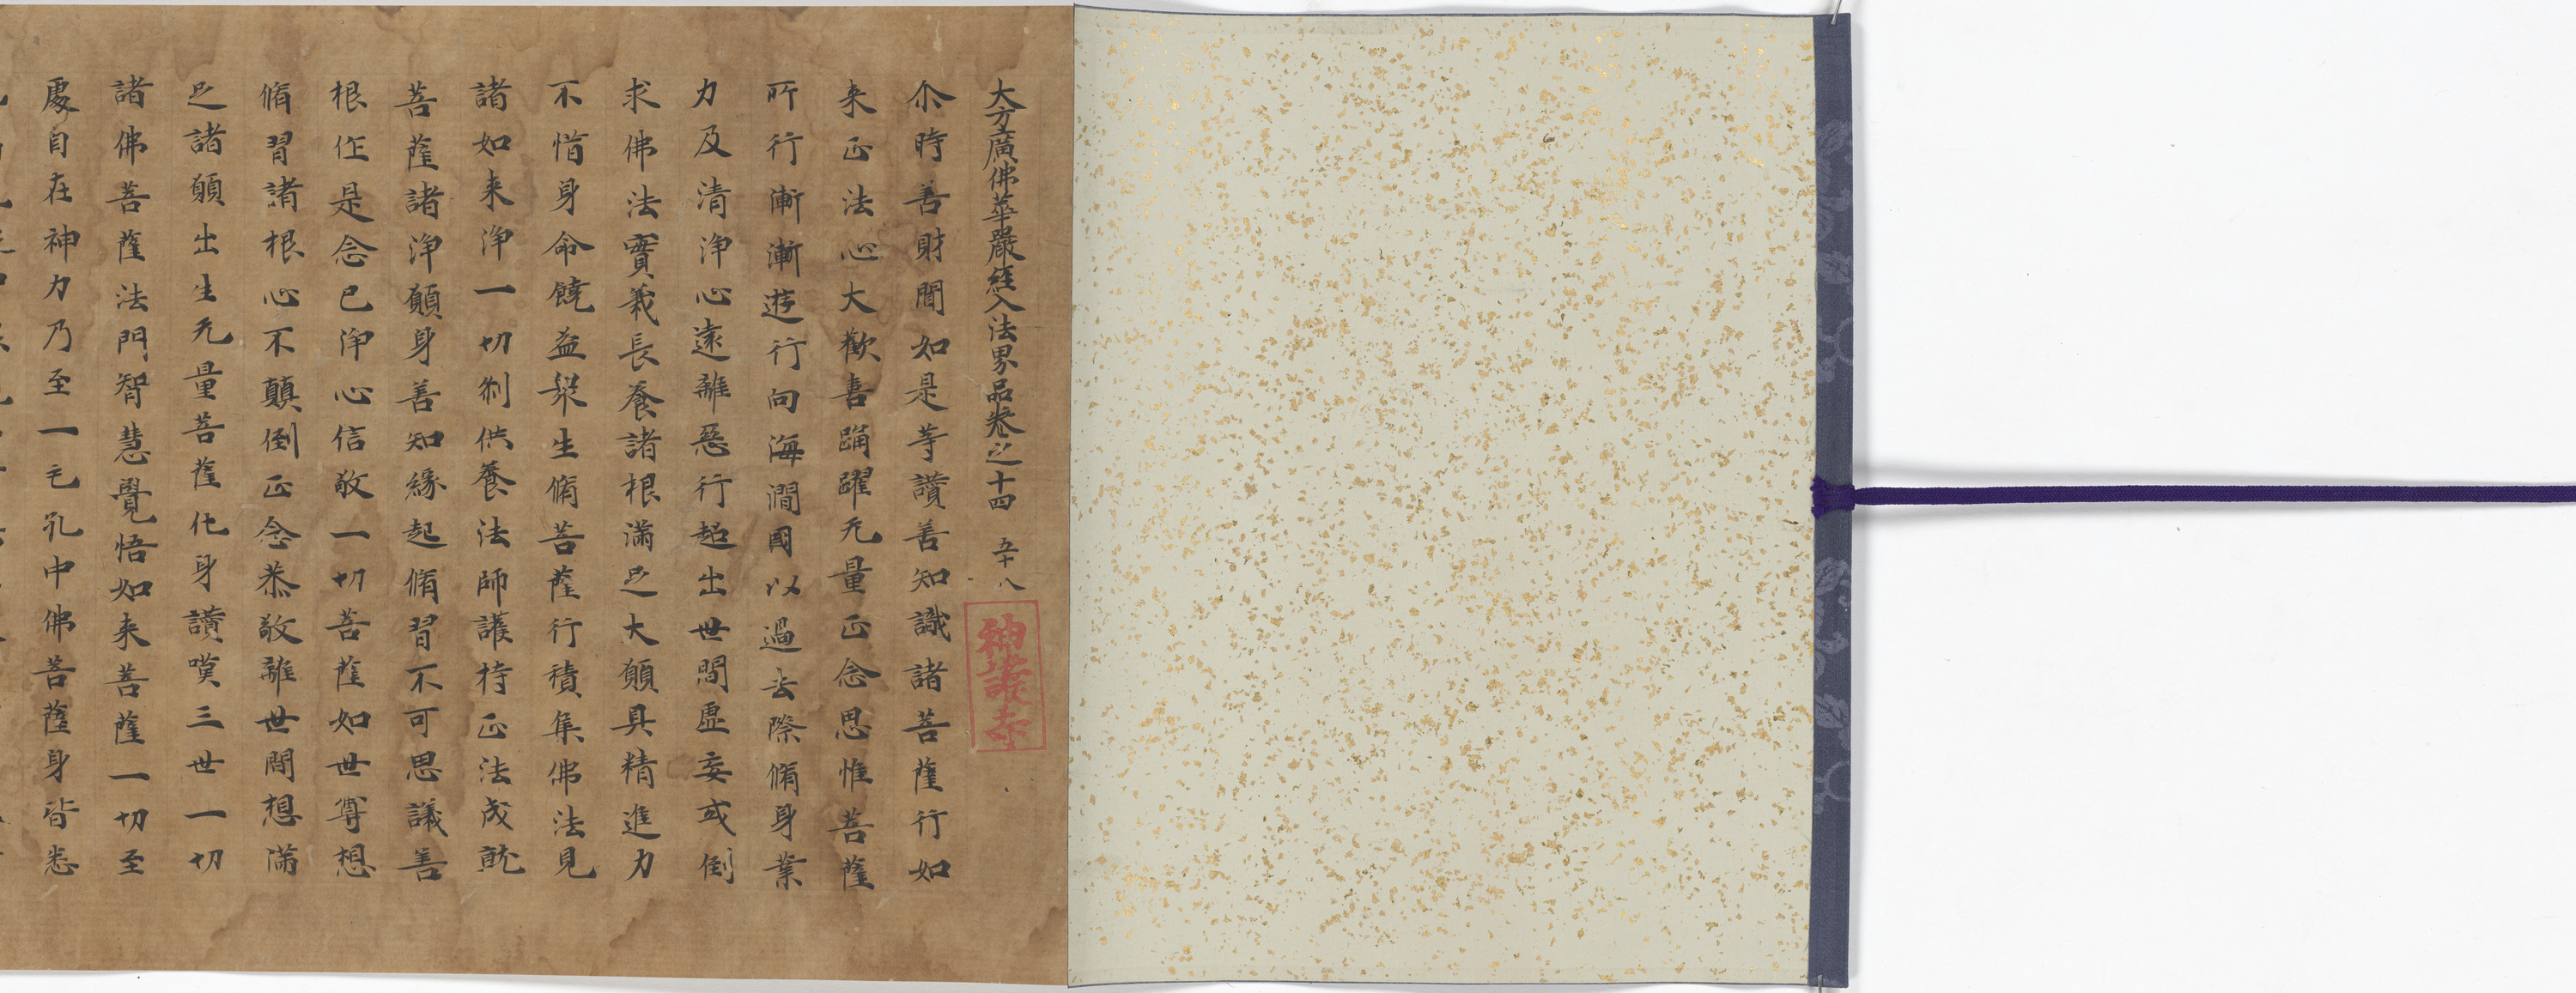 大方廣佛華嚴經入法界品卷之十四 五十八
神護寺
尒時善財聞如是等讚善知識諸菩薩行如
来正法心大歡喜踊躍无量正念思惟菩薩
所行行漸漸遊行向海澗國以過去際脩身業
力及清淨心遠離惡行超出世間虛妄或倒
求佛法實義長養諸根滿足大願具精進力
不惜身命饒益衆生脩菩薩行積集佛法見
諸如来淨一切剎供養法師護持正法成就
菩薩諸淨願身善知緣起脩習不可思議善
根作是念已淨心信敬一切菩薩如世尊想
脩習諸根心不顛倒正念恭敬離世間想滿
足諸願出生无量菩薩化身讚嘆三世一切
諸佛菩薩法門智慧覺悟如来菩薩一切至
處自在神力乃至一毛孔中佛菩薩身皆悉